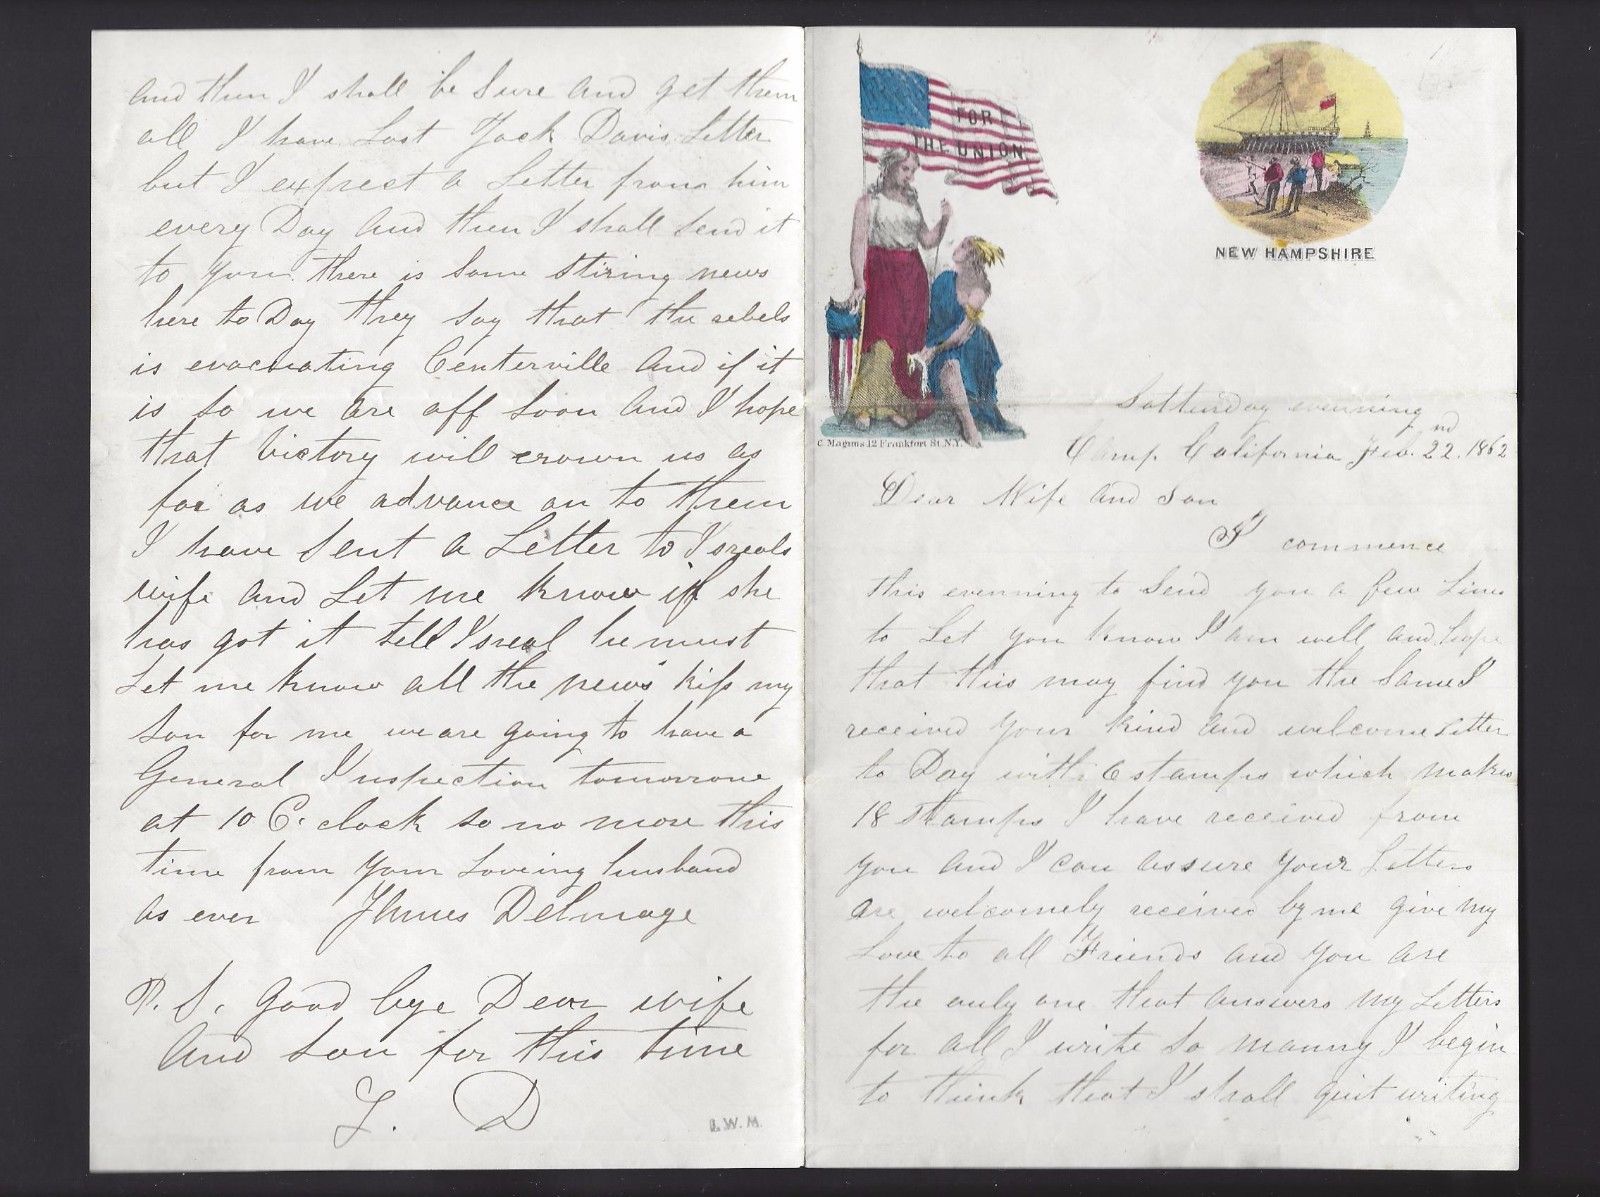 and then I shall be Sure and get them
all I have Lost Jack Davis Letter
but I expect a Letter from him
every Day and then I shall send it
to you there is some stiring news
here to Day they say that the rebels
is evacuating Centerville and if it
is so we are off soon and I hope
that Victory will crown us as
far as we advance on to them
I have sent a Letter to Isreals
wife and Let me know if she
has got it tell Isreal he must
Let me know all the news kiss my
son for me we are going to have a
General Inspection tomorrow
at 10 O. clock so no more this
time from your Loveing husband
as ever James Delmage
P. S. good bye Dear wife
and son for this time
J. D
R.W.M.
FOR
THE UNION
C Magnus 12 Frankfort St. N.Y.
NEW HAMPSHIRE
Satturday evenning
Camp California Feb. 22nd. 1862
Dear Wife and Son
I commence
this evenning to Send you a few Lines
to Let you know I am well and hope
that this may find you the same I
received your kind and welcome Letter
to Day with 6 stamps which makes
18 stamps I have received from
you and I can assure your Letters
are welcomely received by me give my
Love to all Friends and you are
the only one that answers my Letters
for all I write so manny I begin
to think that I shall quit writing